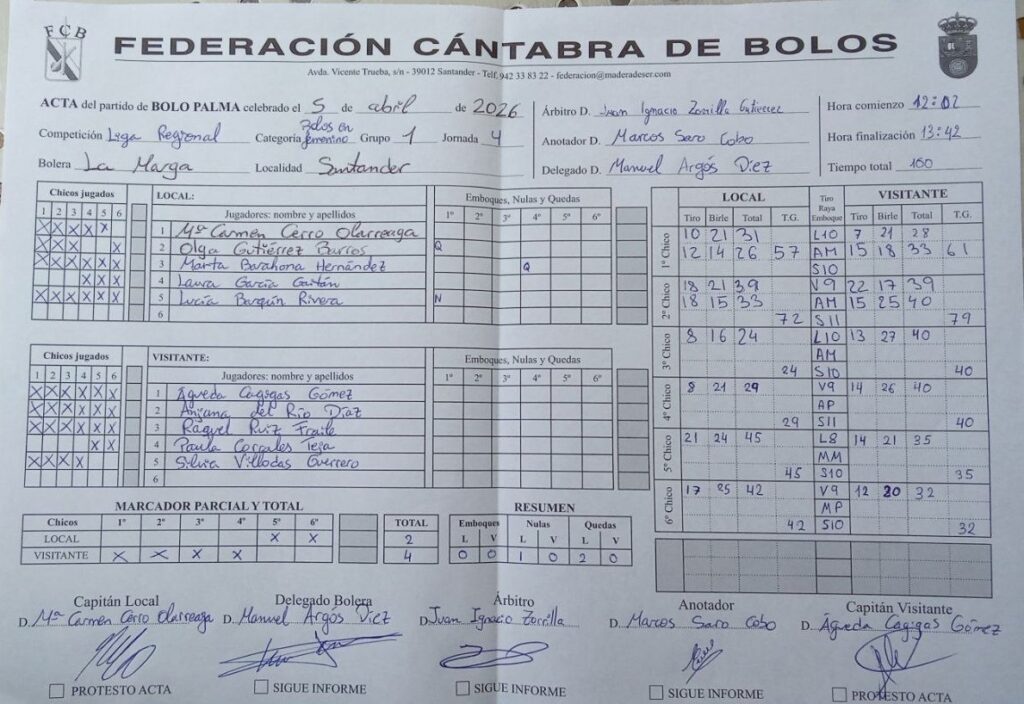 FCB
FEDERACIÓN CÁNTABRA DE BOLOS
Avda. Vicente Trueba, s/n - 39012 Santander - Telf. 942 33 83 22 - federacion@maderadeser.com
ACTA del partido de BOLO PALMA celebrado el 5 de abril de 2026
Competición Liga Regional Categoría Bolos en femenino Grupo 1 Jornada 4
Bolera La Marga Localidad Santander
Árbitro D. Juan Ignacio Zorrilla Gutierrez
Anotador D. Marcos Saro Cobo
Delegado D. Manuel Argós Diez
Hora comienzo 12:02
Hora finalización 13:42
Tiempo total 100
Chicos jugados LOCAL: Emboques, Nulas y Quedas
1 2 3 4 5 6 Jugadores: nombre y apellidos 1º 2º 3º 4º 5º 6º
X X X X X 1 Mª Carmen Cerro Olarreaga
X X X X 2 Olga Gutiérrez Barros Q
X X X X X X 3 Marta Barahona Hernández Q
X X X 4 Laura García Gaitán
X X X X X X 5 Lucía Barquín Rivera N
6
Chicos jugados VISITANTE: Emboques, Nulas y Quedas
1 2 3 4 5 6 Jugadores: nombre y apellidos 1º 2º 3º 4º 5º 6º
X X X X X X 1 Águeda Cagigas Gómez
X X X X X X 2 Anjana del Río Díaz
X X X X X X 3 Raquel Ruiz Fraile
X X 4 Paula Corrales Teja
X X X X 5 Silvia Villodas Guerrero
6
MARCADOR PARCIAL Y TOTAL
Chicos 1º 2º 3º 4º 5º 6º TOTAL
LOCAL X X 2
VISITANTE X X X X 4
RESUMEN
Emboques Nulas Quedas
L V L V L V
0 0 1 0 2 0
LOCAL Tiro Raya Emboque VISITANTE
Tiro Birle Total T.G. Tiro Birle Total T.G.
1º Chico
10 21 31 L10 7 21 28
12 14 26 57 AM 15 18 33 61
S10
2º Chico
18 21 39 V9 22 17 39
18 15 33 AM 15 25 40
72 S11 79
3º Chico
8 16 24 L10 13 27 40
AM
24 S10 40
4º Chico
8 21 29 V9 14 26 40
AP
29 S11 40
5º Chico
21 24 45 L8 14 21 35
MM
45 S10 35
6º Chico
17 25 42 V9 12 20 32
MP
42 S10 32
Capitán Local Delegado Bolera Árbitro Anotador Capitán Visitante
D. Mª Carmen Cerro Olarreaga D. Manuel Argós Diez D. Juan Ignacio Zorrilla D. Marcos Saro Cobo D. Águeda Cagigas Gómez
PROTESTO ACTA SIGUE INFORME SIGUE INFORME SIGUE INFORME PROTESTO ACTA